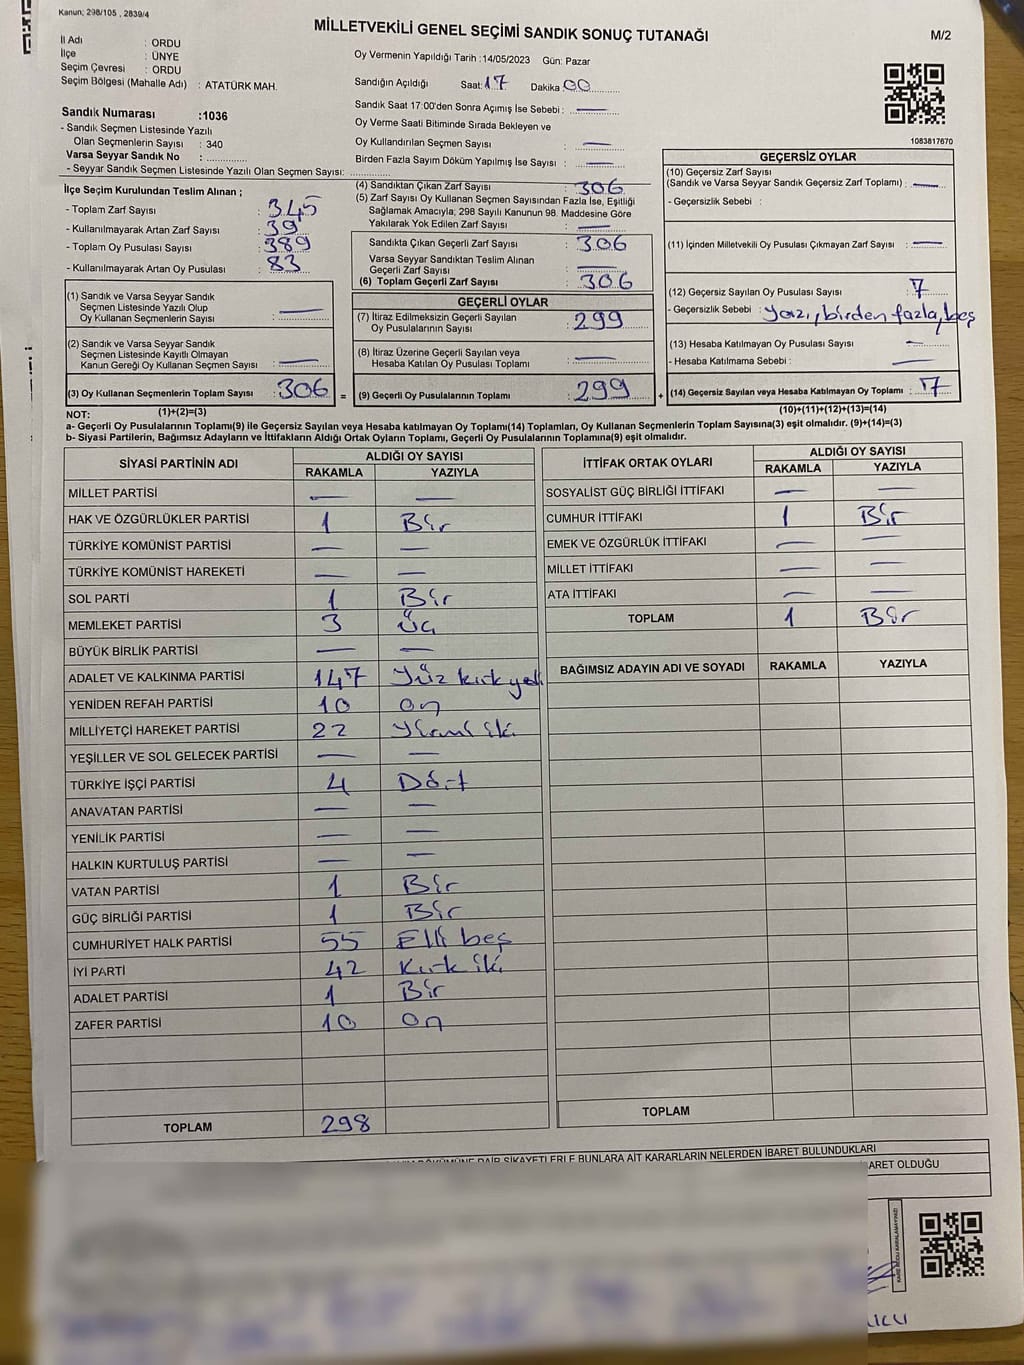 Kanun; 298/105 , 2839/4
MİLLETVEKİLİ GENEL SEÇİMİ SANDIK SONUÇ TUTANAĞI
M/2
İl Adı : ORDU
İlçe : ÜNYE
Seçim Çevresi : ORDU
Seçim Bölgesi (Mahalle Adı) : ATATÜRK MAH.
Oy Vermenin Yapıldığı Tarih :14/05/2023 Gün: Pazar
Sandığın Açıldığı Saat:17 Dakika:00
Sandık Saat 17:00'den Sonra Açımış İse Sebebi : —
Oy Verme Saati Bitiminde Sırada Bekleyen ve
Oy Kullandırılan Seçmen Sayısı : —
Birden Fazla Sayım Döküm Yapılmış İse Sayısı : —
1083817670
Sandık Numarası :1036
- Sandık Seçmen Listesinde Yazılı
Olan Seçmenlerin Sayısı : 340
Varsa Seyyar Sandık No :
- Seyyar Sandık Seçmen Listesinde Yazılı Olan Seçmen Sayısı:
İlçe Seçim Kurulundan Teslim Alınan ;
- Toplam Zarf Sayısı : 345
- Kullanılmayarak Artan Zarf Sayısı : 39
- Toplam Oy Pusulası Sayısı : 389
- Kullanılmayarak Artan Oy Pusulası : 83
(1) Sandık ve Varsa Seyyar Sandık
Seçmen Listesinde Yazılı Olup
Oy Kullanan Seçmenlerin Sayısı : —
(2) Sandık ve Varsa Seyyar Sandık
Seçmen Listesinde Kayıtlı Olmayan
Kanun Gereği Oy Kullanan Seçmen Sayısı : —
(3) Oy Kullanan Seçmenlerin Toplam Sayısı : 306 =
(1)+(2)=(3)
(4) Sandıktan Çıkan Zarf Sayısı : 306
(5) Zarf Sayısı Oy Kullanan Seçmen Sayısından Fazla İse, Eşitliği
Sağlamak Amacıyla; 298 Sayılı Kanunun 98. Maddesine Göre
Yakılarak Yok Edilen Zarf Sayısı : —
Sandıkta Çıkan Geçerli Zarf Sayısı : 306
Varsa Seyyar Sandıktan Teslim Alınan
Geçerli Zarf Sayısı : —
(6) Toplam Geçerli Zarf Sayısı : 306
GEÇERLİ OYLAR
(7) İtiraz Edilmeksizin Geçerli Sayılan
Oy Pusulalarının Sayısı : 299
(8) İtiraz Üzerine Geçerli Sayılan veya
Hesaba Katılan Oy Pusulası Toplamı : —
(9) Geçerli Oy Pusulalarının Toplamı : 299 +
GEÇERSİZ OYLAR
(10) Geçersiz Zarf Sayısı
(Sandık ve Varsa Seyyar Sandık Geçersiz Zarf Toplamı) : —
- Geçersizlik Sebebi :
(11) İçinden Milletvekili Oy Pusulası Çıkmayan Zarf Sayısı : —
(12) Geçersiz Sayılan Oy Pusulası Sayısı : 7
- Geçersizlik Sebebi : yazı, birden fazla, beş
(13) Hesaba Katılmayan Oy Pusulası Sayısı : —
- Hesaba Katılmama Sebebi : —
(14) Geçersiz Sayılan veya Hesaba Katılmayan Oy Toplamı : 7
(10)+(11)+(12)+(13)=(14)
NOT:
a- Geçerli Oy Pusulalarının Toplamı(9) ile Geçersiz Sayılan veya Hesaba katılmayan Oy Toplamı(14) Toplamları, Oy Kullanan Seçmenlerin Toplam Sayısına(3) eşit olmalıdır. (9)+(14)=(3)
b- Siyasi Partilerin, Bağımsız Adayların ve İttifakların Aldığı Ortak Oyların Toplamı, Geçerli Oy Pusulalarının Toplamına(9) eşit olmalıdır.
SİYASİ PARTİNİN ADI ALDIĞI OY SAYISI
RAKAMLA YAZIYLA
MİLLET PARTİSİ — —
HAK VE ÖZGÜRLÜKLER PARTİSİ 1 Bir
TÜRKİYE KOMÜNİST PARTİSİ — —
TÜRKİYE KOMÜNİST HAREKETİ — —
SOL PARTİ 1 Bir
MEMLEKET PARTİSİ 3 Üç
BÜYÜK BİRLİK PARTİSİ — —
ADALET VE KALKINMA PARTİSİ 147 Yüz kırk yedi
YENİDEN REFAH PARTİSİ 10 On
MİLLİYETÇİ HAREKET PARTİSİ 22 Yirmi iki
YEŞİLLER VE SOL GELECEK PARTİSİ — —
TÜRKİYE İŞÇİ PARTİSİ 4 Dört
ANAVATAN PARTİSİ — —
YENİLİK PARTİSİ — —
HALKIN KURTULUŞ PARTİSİ — —
VATAN PARTİSİ 1 Bir
GÜÇ BİRLİĞİ PARTİSİ 1 Bir
CUMHURİYET HALK PARTİSİ 55 Elli beş
İYİ PARTİ 42 Kırk iki
ADALET PARTİSİ 1 Bir
ZAFER PARTİSİ 10 On
TOPLAM 298
İTTİFAK ORTAK OYLARI ALDIĞI OY SAYISI
RAKAMLA YAZIYLA
SOSYALİST GÜÇ BİRLİĞİ İTTİFAKI — —
CUMHUR İTTİFAKI 1 Bir
EMEK VE ÖZGÜRLÜK İTTİFAKI — —
MİLLET İTTİFAKI — —
ATA İTTİFAKI — —
TOPLAM 1 Bir
BAĞIMSIZ ADAYIN ADI VE SOYADI RAKAMLA YAZIYLA
TOPLAM
DÖKÜMÜNE DAİR ŞİKAYETLERLE BUNLARA AİT KARARLARIN NELERDEN İBARET BULUNDUKLARI
ARET OLDUĞU